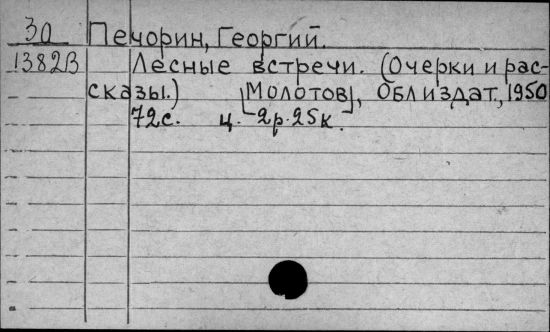 30 Печорин, Георгий.
1382В Лесные встречи. (Очерки и рас-
сказы.) [Молотов], Облиздат, 1950
72с. ц. 2р.25к.